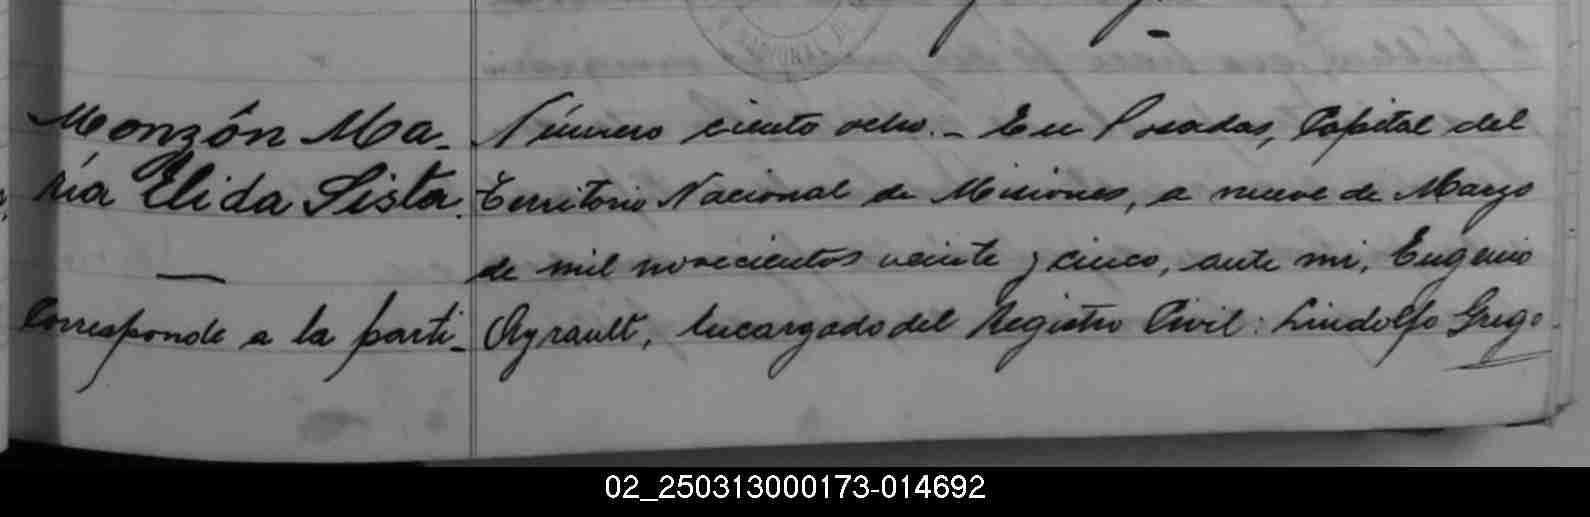 Monzón Ma-
ría Elida Sista.
—
Corresponde a la parti-
Número ciento ocho. - En Posadas, Capital del
Territorio Nacional de Misiones, a nueve de Marzo
de mil novecientos veinte y cinco, ante mi, Eugenio
Ayrault, Encargado del Registro Civil: Lindolfo Grego-
02_250313000173-014692